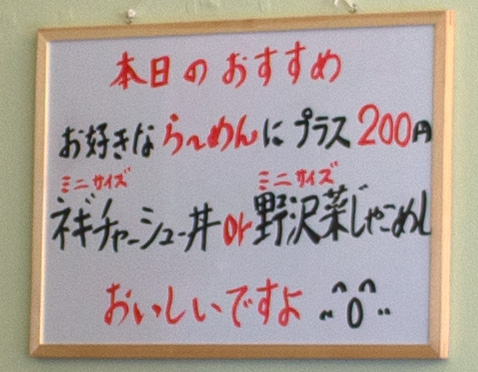 本日のおすすめ
お好きならーめんにプラス200円
ミニサイズ ミニサイズ
ネギチャーシュー丼or野沢菜じゃこめし
おいしいですよ ^0^